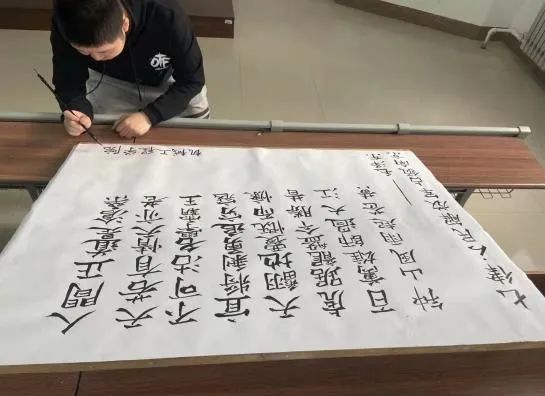 七律 人民解放军占领南京
毛泽东
钟山風雨起蒼黄
百萬雄師過大江
虎踞龍盤今勝昔
天翻地覆慨而慷
宜將剩勇追窮寇
不可沽名學霸王
天若有情天亦老
人間正道是滄桑
机械工程学院